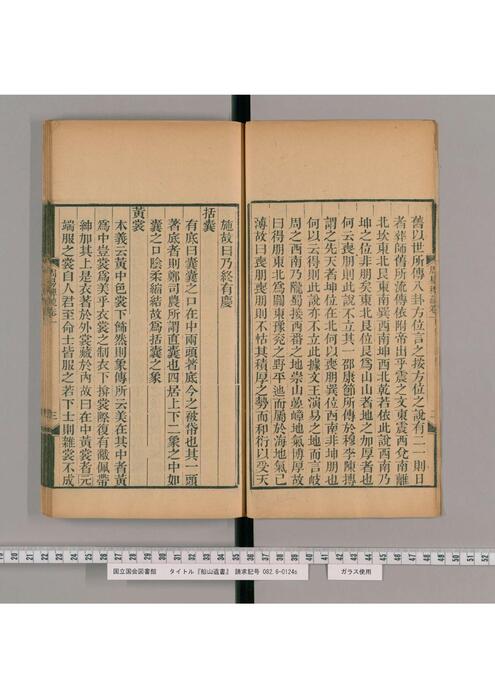 舊以世所傳八卦方位言之按方位之說有二一則曰
者葬師舊所流傳依附帝出乎震之文東震西兌南離
北坎東北艮東南巽西南坤西北乾若依此說西南乃
坤之位非朋矣東北艮位艮爲山山者地之加厚者也
何云喪朋則此說不立其一邵康節所傳於穆李陳摶
謂之先天者坤位在北何以喪朋巽位西南非坤朋也
何以云得則此說亦不立此據文王演易之地而言岐
周之西南乃隴蜀接西番之地崇山必嶂地氣博厚故
曰得朋東北爲關東豫兗之野平迤而屬於海地氣已
薄故曰喪朋喪朋則不怙其積厚之勢而和衍以受天
施故曰乃終有慶
括囊
有底曰囊囊之口在中兩頭著底今之被帒也其一頭
著底者則鄭司農所謂直囊也四居上下二象之中如
囊之口陰柔縮結故爲括囊之象
黃裳
本義云黃中色裳下飾然則象傳所云美在其中者黃
爲中豈裳爲美乎衣裳之制衣下揜裳際復有敝佩帶
紳加其上是衣著於外裳藏於內故曰在中黃裳者元
端服之裳自人君至命士皆服之若下士則雜裳不成
国立国会図書館 タイトル『船山遺書』 請求記号 082.6-0124s ガラス使用